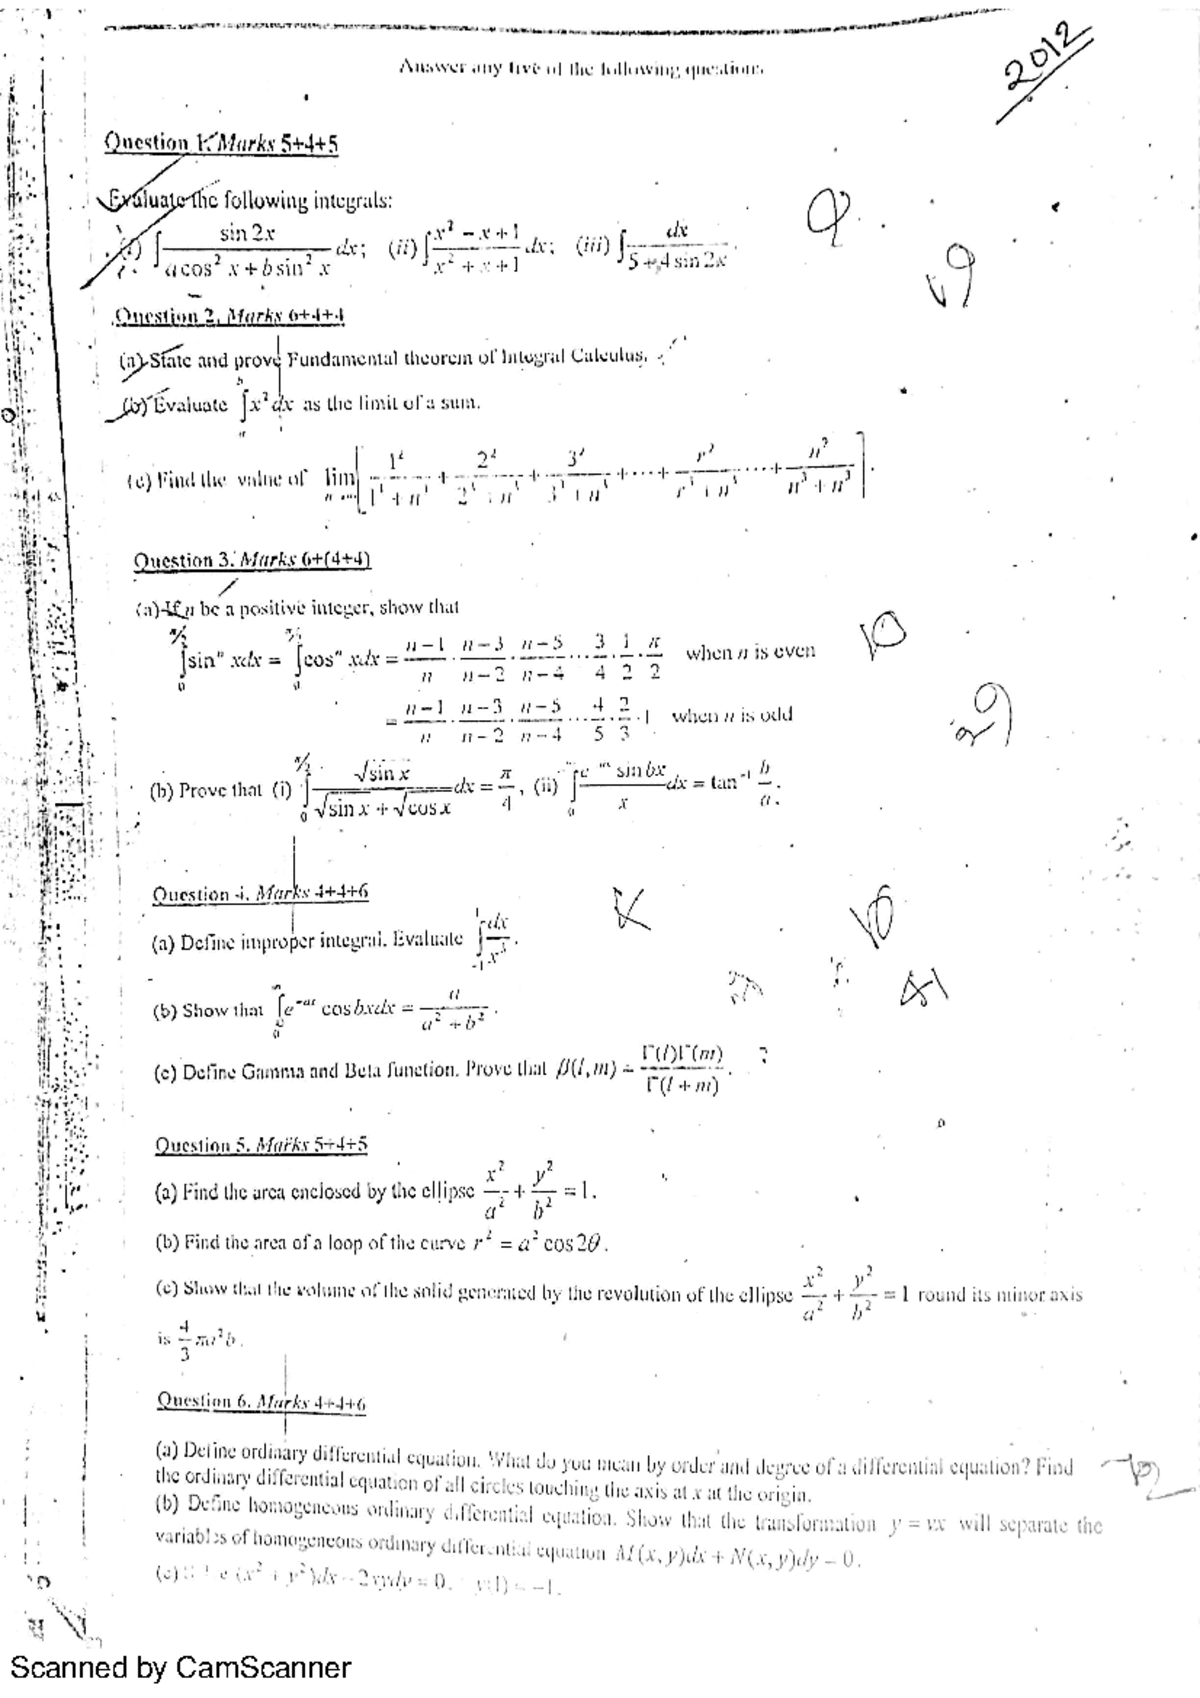 2012
Answer any five of the following questions
Question 1. Marks 5+4+5
Evaluate the following integrals:
(i) ∫ sin 2x / (a cos² x + b sin² x) dx; (ii) ∫ (x² − x + 1) / (x² + x + 1) dx; (iii) ∫ dx / (5 + 4 sin 2x).
Question 2. Marks 6+4+4
(a) State and prove Fundamental theorem of Integral Calculus.
(b) Evaluate ∫ₐᵇ x² dx as the limit of a sum.
(c) Find the value of lim [ 1²/(1³ + n³) + 2²/(2³ + n³) + 3²/(3³ + n³) + ⋯ + r²/(r³ + n³) ⋯ + n²/(n³ + n³) ].
Question 3. Marks 6+(4+4)
(a) If n be a positive integer, show that
∫₀^(π/2) sinⁿ xdx = ∫₀^(π/2) cosⁿ xdx = (n−1)/n · (n−3)/(n−2) · (n−5)/(n−4) ⋯ 3/4 · 1/2 · π/2 when n is even
= (n−1)/n · (n−3)/(n−2) · (n−5)/(n−4) ⋯ 4/5 · 2/3 · 1 when n is odd
(b) Prove that (i) ∫₀^(π/2) √sin x / (√sin x + √cos x) dx = π/4, (ii) ∫₀ e sin bx / x dx = tan⁻¹ b/a.
Question 4. Marks 4+4+6
(a) Define improper integral. Evaluate ∫₋₁¹ dx/x³.
(b) Show that ∫₀^∞ e^(−ax) cos bxdx = a / (a² + b²).
(c) Define Gamma and Beta function. Prove that β(l, m) = Γ(l)Γ(m) / Γ(l + m). ?
Question 5. Marks 5+4+5
(a) Find the area enclosed by the ellipse x²/a² + y²/b² = 1.
(b) Find the area of a loop of the curve r² = a² cos 2θ.
(c) Show that the volume of the solid generated by the revolution of the ellipse x²/a² + y²/b² = 1 round its minor axis
is 4/3 πa²b.
Question 6. Marks 4+4+6
(a) Define ordinary differential equation. What do you mean by order and degree of a differential equation? Find
the ordinary differential equation of all circles touching the axis at x at the origin.
(b) Define homogeneous ordinary differential equation. Show that the transformation y = vx will separate the
variables of homogeneous ordinary differential equation M(x, y)dx + N(x, y)dy = 0.
(c) (x² + y²)dx − 2xydy = 0, y(1) = −1.
Scanned by CamScanner